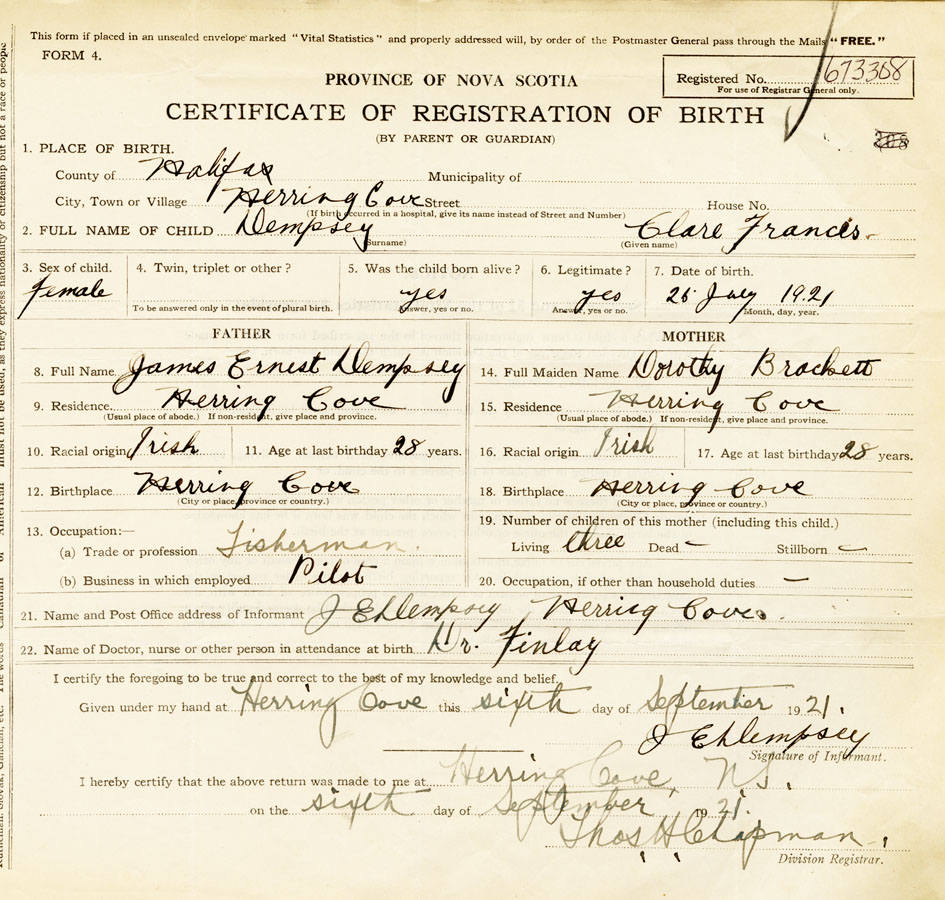 This form if placed in an unsealed envelope marked "Vital Statistics" and properly addressed will, by order of the Postmaster General pass through the Mails "FREE."
FORM 4.
PROVINCE OF NOVA SCOTIA
Registered No. 673308
For use of Registrar General only.
CERTIFICATE OF REGISTRATION OF BIRTH
(BY PARENT OR GUARDIAN)
1. PLACE OF BIRTH.
County of Halifax Municipality of
City, Town or Village Herring Cove Street House No.
(If birth occurred in a hospital, give its name instead of Street and Number)
2. FULL NAME OF CHILD Dempsey Clare Francis
(Surname) (Given name)
3. Sex of child. 4. Twin, triplet or other? 5. Was the child born alive? 6. Legitimate? 7. Date of birth.
Female yes yes 25 July 1921
To be answered only in the event of plural birth. Answer, yes or no. Answer, yes or no. Month, day, year.
FATHER MOTHER
8. Full Name James Ernest Dempsey 14. Full Maiden Name Dorothy Brackett
9. Residence Herring Cove 15. Residence Herring Cove
(Usual place of abode.) If non-resident, give place and province. (Usual place of abode.) If non-resident, give place and province.
10. Racial origin Irish 11. Age at last birthday 28 years. 16. Racial origin Irish 17. Age at last birthday 28 years.
12. Birthplace Herring Cove 18. Birthplace Herring Cove
(City or place, province or country.) (City or place, province or country.)
13. Occupation:— 19. Number of children of this mother (including this child.)
(a) Trade or profession Fisherman. Living three Dead – Stillborn –
(b) Business in which employed Pilot 20. Occupation, if other than household duties –
21. Name and Post Office address of Informant J E Dempsey Herring Cove.
22. Name of Doctor, nurse or other person in attendance at birth Dr. Finlay
I certify the foregoing to be true and correct to the best of my knowledge and belief.
Given under my hand at Herring Cove this sixth day of September 1921.
J E Dempsey
Signature of Informant.
I hereby certify that the above return was made to me at Herring Cove, N.S.
on the sixth day of September 1921.
Thos H Chapman.
Division Registrar.